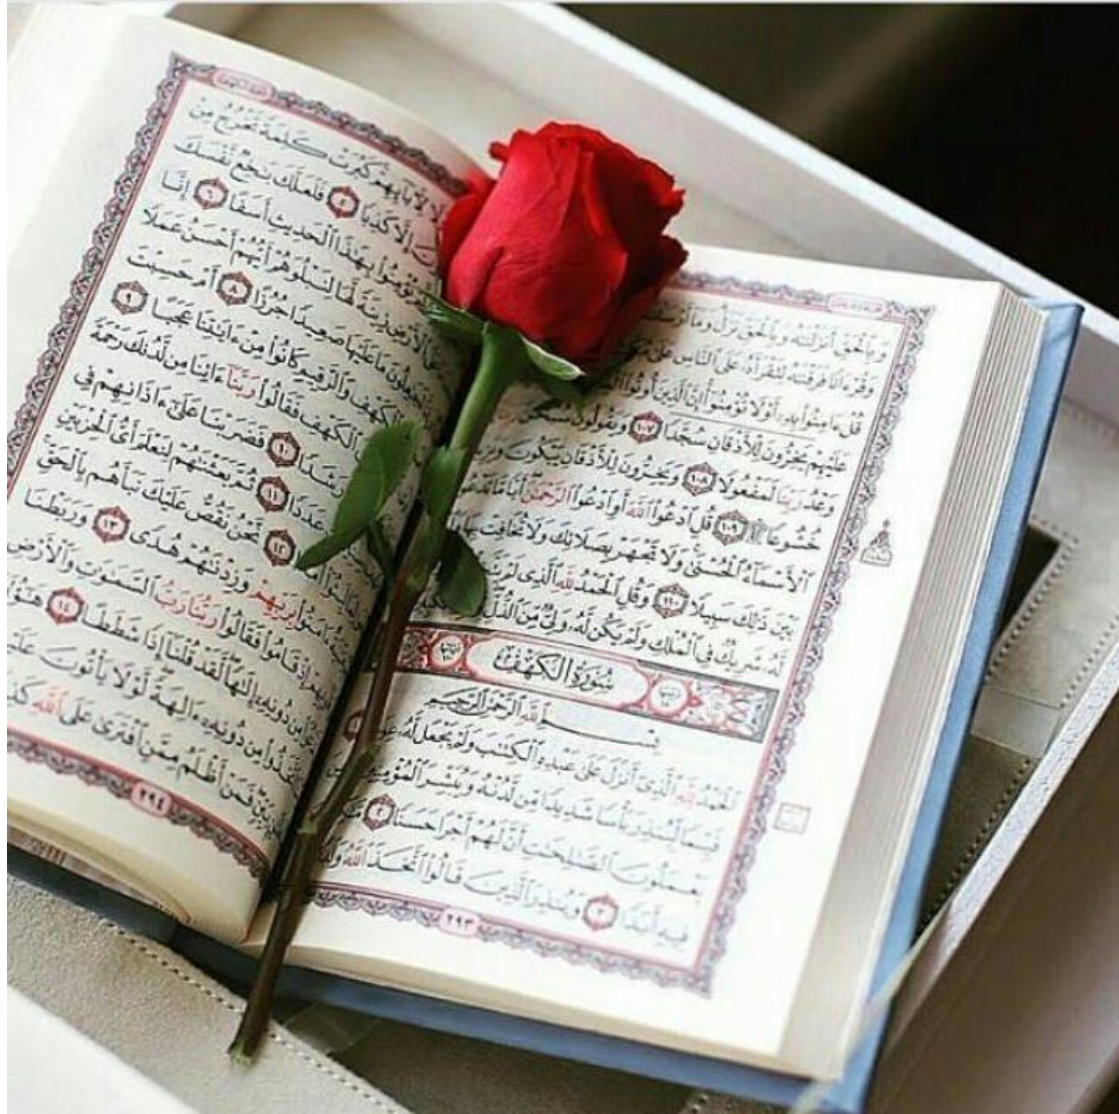 وَبِٱلْحَقِّ أَنزَلْنَٰهُ وَبِٱلْحَقِّ نَزَلَ وَمَآ
وَقُرْءَانًا فَرَقْنَٰهُ لِتَقْرَأَهُۥ عَلَى ٱلنَّاسِ عَلَىٰ
قُلْ ءَامِنُوا۟ بِهِۦٓ أَوْ لَا تُؤْمِنُوٓا۟ إِنَّ ٱلَّذِينَ أُوتُوا۟
عَلَيْهِمْ يَخِرُّونَ لِلْأَذْقَانِ سُجَّدًا ١٠٧ وَيَقُولُونَ سُبْحَٰنَ
وَعْدُ رَبِّنَا لَمَفْعُولًا ١٠٨ وَيَخِرُّونَ لِلْأَذْقَانِ يَبْكُونَ
خُشُوعًا ۩ ١٠٩ قُلِ ٱدْعُوا۟ ٱللَّهَ أَوِ ٱدْعُوا۟ ٱلرَّحْمَٰنَ أَيًّا مَّا
ٱلْأَسْمَآءُ ٱلْحُسْنَىٰ وَلَا تَجْهَرْ بِصَلَاتِكَ وَلَا تُخَافِتْ بِهَا
بَيْنَ ذَٰلِكَ سَبِيلًا ١١٠ وَقُلِ ٱلْحَمْدُ لِلَّهِ ٱلَّذِى لَمْ
لَّهُۥ شَرِيكٌ فِى ٱلْمُلْكِ وَلَمْ يَكُن لَّهُۥ وَلِىٌّ مِّنَ ٱلذُّلِّ
سُورَةُ الكَهْفِ
بِسْمِ ٱللَّهِ ٱلرَّحْمَٰنِ ٱلرَّحِيمِ
ٱلْحَمْدُ لِلَّهِ ٱلَّذِىٓ أَنزَلَ عَلَىٰ عَبْدِهِ ٱلْكِتَٰبَ وَلَمْ يَجْعَل لَّهُۥ
قَيِّمًا لِّيُنذِرَ بَأْسًا شَدِيدًا مِّن لَّدُنْهُ وَيُبَشِّرَ ٱلْمُؤْمِنِينَ
يَعْمَلُونَ ٱلصَّٰلِحَٰتِ أَنَّ لَهُمْ أَجْرًا حَسَنًا ٢
فِيهِ أَبَدًا ٣ وَيُنذِرَ ٱلَّذِينَ قَالُوا۟ ٱتَّخَذَ ٱللَّهُ
٢٩٣
لِءَابَآئِهِمْ كَبُرَتْ كَلِمَةً تَخْرُجُ مِنْ
إِلَّا كَذِبًا ٥ فَلَعَلَّكَ بَٰخِعٌ نَّفْسَكَ
يُؤْمِنُوا۟ بِهَٰذَا ٱلْحَدِيثِ أَسَفًا ٦ إِنَّا
ٱلْأَرْضِ زِينَةً لَّهَا لِنَبْلُوَهُمْ أَيُّهُمْ أَحْسَنُ عَمَلًا
لَجَٰعِلُونَ مَا عَلَيْهَا صَعِيدًا جُرُزًا ٨ أَمْ حَسِبْتَ
ٱلْكَهْفِ وَٱلرَّقِيمِ كَانُوا۟ مِنْ ءَايَٰتِنَا عَجَبًا ٩
ٱلْكَهْفِ فَقَالُوا۟ رَبَّنَآ ءَاتِنَا مِن لَّدُنكَ رَحْمَةً
رَشَدًا ١٠ فَضَرَبْنَا عَلَىٰٓ ءَاذَانِهِمْ فِى
عَدَدًا ١١ ثُمَّ بَعَثْنَٰهُمْ لِنَعْلَمَ أَىُّ ٱلْحِزْبَيْنِ
١٢ نَّحْنُ نَقُصُّ عَلَيْكَ نَبَأَهُم بِٱلْحَقِّ
ءَامَنُوا۟ بِرَبِّهِمْ وَزِدْنَٰهُمْ هُدًى ١٣ وَرَبَطْنَا
إِذْ قَامُوا۟ فَقَالُوا۟ رَبُّنَا رَبُّ ٱلسَّمَٰوَٰتِ وَٱلْأَرْضِ
مِن دُونِهِۦٓ إِلَٰهًا لَّقَدْ قُلْنَآ إِذًا شَطَطًا ١٤ هَٰٓؤُلَآءِ
مِن دُونِهِۦٓ ءَالِهَةً لَّوْلَا يَأْتُونَ
فَمَنْ أَظْلَمُ مِمَّنِ ٱفْتَرَىٰ عَلَى ٱللَّهِ
٢٩٤